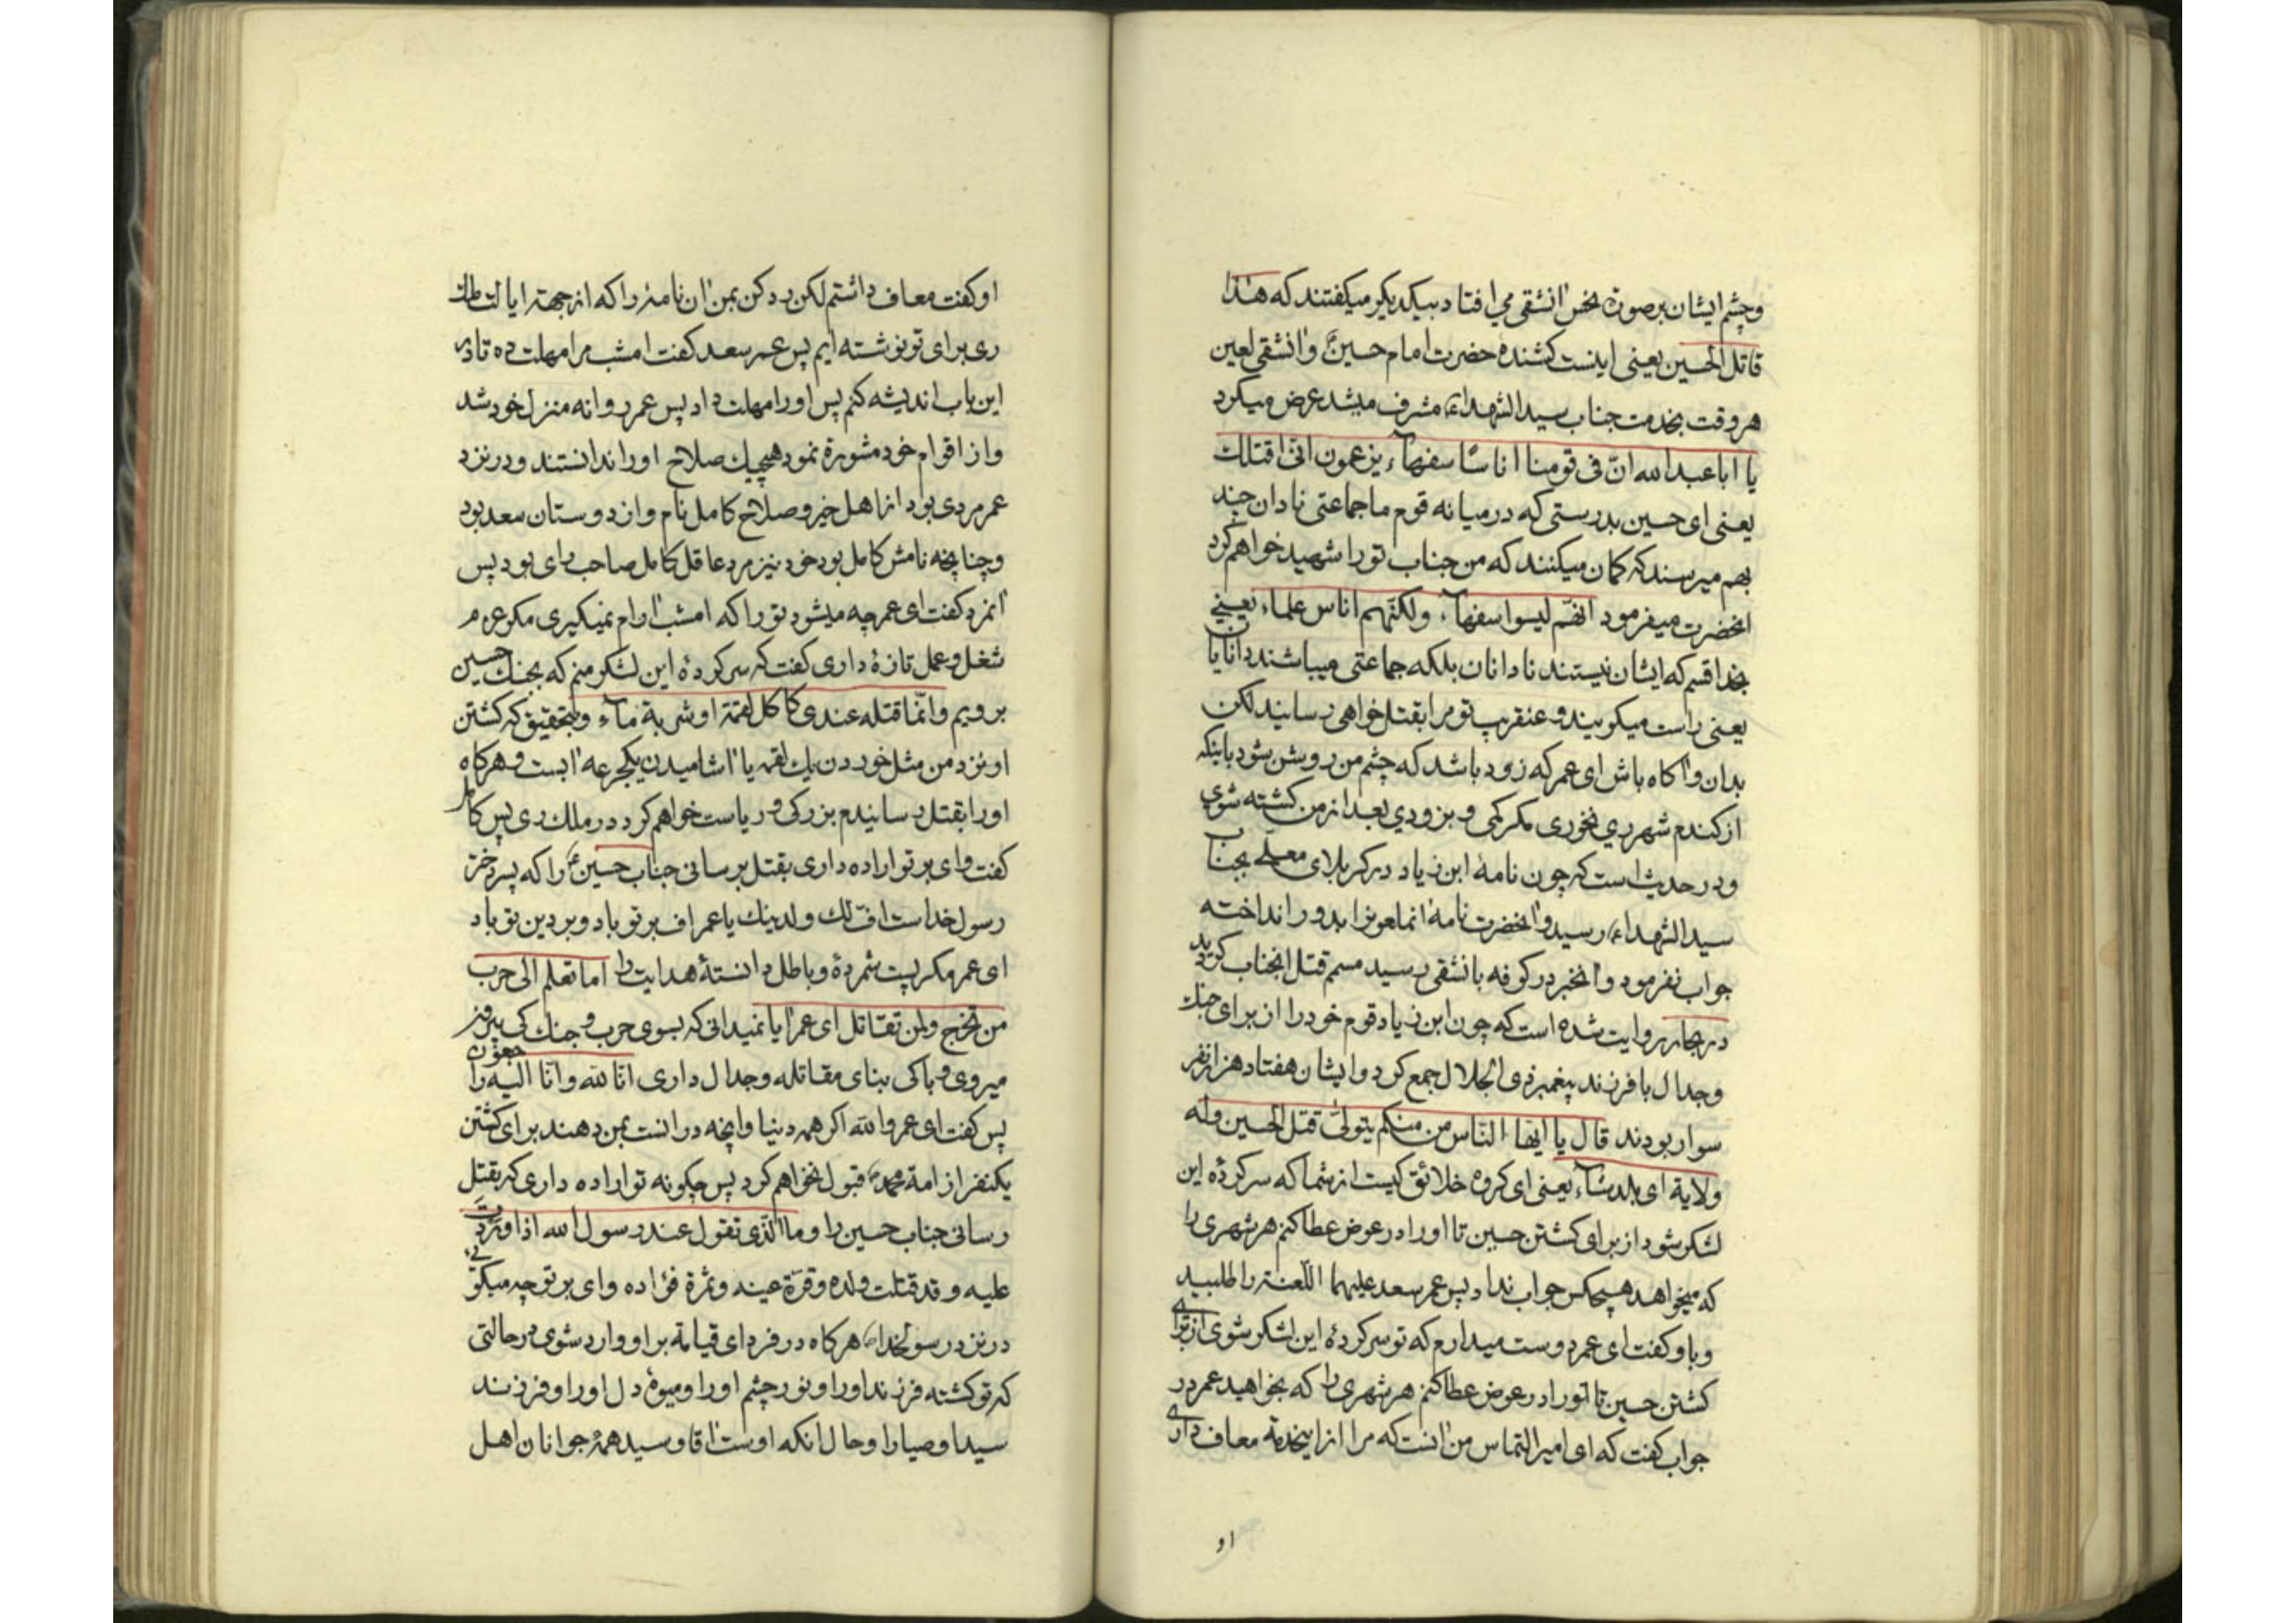 وچشم ایشان بر صورة نحس آنشقی می افتاد بیکدیکر میکفتند که هذا
قاتل الحسین یعنی اینست کشندهٔ حضرت امام حسینؑ و آنشقی لعین
هر وقت بخدمت جناب سید الشهداءؑ مشرف میشد عرض میکرد
یا ابا عبد الله انّ فی قومنا اناسًا سفهآء یزعمون انّی اقتلک
یعنی ای حسین بدرستی که در میانه قوم ما جماعتی نادان چند
بهم میرسند که کمان میکنند که من جناب تو را شهید خواهم کرد
انحضرت میفرمود انهّم لیسوا سفهآء ولکنّهم اناس علماء یعنی
بخدا قسم که ایشان نیستند نادانان بلکه جماعتی میباشند دانایان
یعنی راست میکویند و عنقریب تو مرا بقتل خواهی رسانید لکن
بدان و آکاه باش ای عمر که زود باشد که چشم من روشن شود باینکه
از کندم شهر ری نخوری مکر کمی و بزودی بعد از من کشته شوی
و در حدیث است که چون نامهٔ ابن زیاد در کربلای معلّی بجناب
سید الشهداءؑ رسید و آنحضرت نامهٔ انملعونرا بدور انداخته
جواب نفرمود و آنخبر در کوفه بانشقی رسید مصمم قتل انجناب کردید
در بحار روایت شده است که چون ابن زیاد قوم خود را از برای جنک
وجدال با فرزند پیغمبر ذی الجلال جمع کرد و ایشان هفتاد هزار نفر
سوار بودند قال یا ایّها النّاس من منکم یتولّی قتل الحسین وله
ولایة ای بلد شآء یعنی ای کروه خلائق کیست از شما که سرکردهٔ این
لشکر شود از برای کشتن حسین تا او را در عوض عطا کنم هر شهری را
که میخواهد هیچکس جواب نداد پس عمر سعد علیهما اللّعنة را طلبید
و باو کفت ای عمر دوست میدارم که تو سرکردهٔ این لشکر شوی از برای
کشتن حسین تا تو را در عوض عطا کنم هر شهری را که بخواهید عمر در
جواب کفت که ای امیر التماس من آنست که مرا از اینخدمة معاف داری
او
او کفت معاف داشتم لکن رد کن بمن آن نامهٔ را که از جهة ایالت ملک
ری برای تو نوشته ایم پس عمر سعد کفت امشب مرا مهلت ده تا در
این باب اندیشه کنم پس او را مهلت داد پس عمر روانه منزل خود شد
و از اقوام خود مشورة نمود هیچیک صلاح او را ندانستند و در نزد
عمر مردی بود از اهل خیر و صلاح کامل نام و از دوستان سعد بود
و چنانچه نامش کامل بود خود نیز مرد عاقل کامل صاحب رای بود پس
آنمرد کفت ای عمر چه میشود تو را که امشب آرام نمیکیری مکر عزم
شغل و عمل تازهٔ داری کفت که سرکردهٔ این لشکر منم که بجنک حسین
برویم وانّما قتله عندی کاکل لقمة او شربة مآء و بتحقیق که کشتن
او نزد من مثل خوردن یک لقمه یا آشامیدن یکجرعه آبست و هرکاه
او را بقتل رسانیدم بزرکی و ریاست خواهم کرد در ملک ری پس کامل
کفت وای بر تو اراده داری بقتل برسانی جناب حسینؑ را که پسر دختر
رسول خداست افّ لک ولدینک یا عمر اف بر تو باد و بر دین تو باد
ای عمر مکر پست شمردهٔ و باطل دانستهٔ هدایت را اما تعلم الی حرب
من تخرج ولمن تقاتل ای عمر آیا نمیدانی که بسوی حرب و جنک کی بیرون
میروی و با کی بنای مقاتله و جدال داری انّا لله وانّا الیه راجعون
پس کفت ای عمر والله اکر همه دنیا و انچه در انست بمن دهند برای کشتن
یکنفر از امة محمدؐ قبول نخواهم کرد پس چکونه تو اراده داری که بقتل
رسانی جناب حسین را وما الّذی تقول عند رسول الله اذا وردت
علیه وقد قتلت ولده وقرّة عینه وثمرة فؤاده وای بر تو چه میکوئی
در نزد رسولخداؐ هرکاه در فردای قیامة بر او وارد شوی در حالتی
که تو کشته فرزند او را و نور چشم او را و میوهٔ دل او را و فرزند
سید اوصیا را و حال آنکه اوست آقا و سید همهٔ جوانان اهل